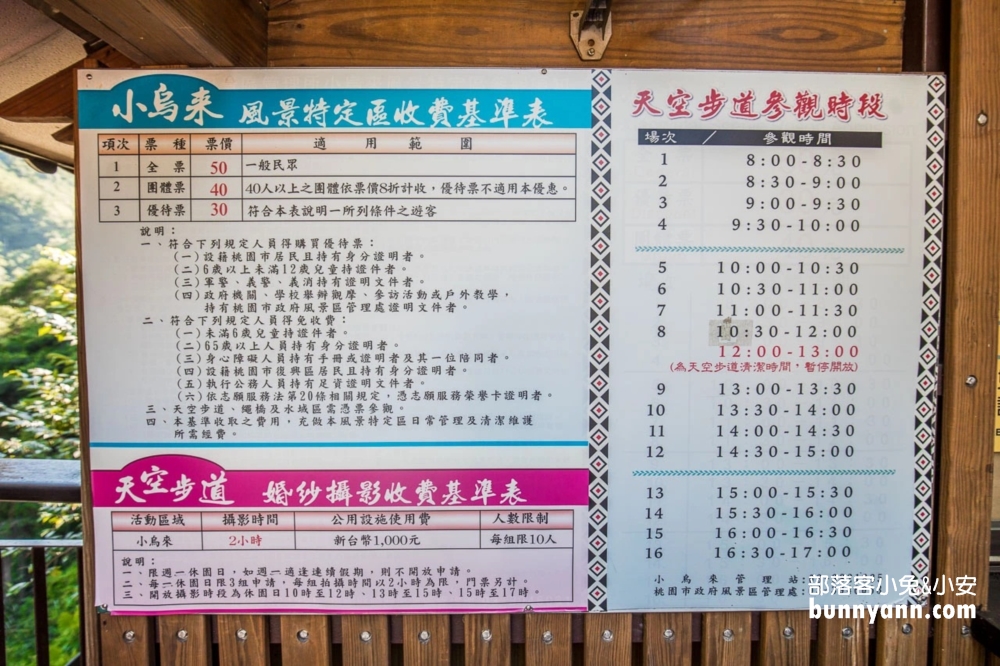 小烏來 風景特定區收費基準表
項次 票種 票價 適用範圍
1 全票 50 一般民眾
2 團體票 40 40人以上之團體依票價8折計收，優待票不適用本優惠。
3 優待票 30 符合本表說明一所列條件之遊客
說明：
一、符合下列規定人員得購買優待票：
(一)設籍桃園市居民且持有身分證明者。
(二)6歲以上未滿12歲兒童持證件者。
(三)軍警、義警、義消持有證明文件者。
(四)政府機關、學校舉辦觀摩、參訪活動或戶外教學，
持有桃園市政府風景區管理處證明文件者。
二、符合下列規定人員得免收費：
(一)未滿6歲兒童持證件者。
(二)65歲以上人員持有身分證明者。
(三)身心障礙人員持有手冊或證明者及其一位陪同者。
(四)設籍桃園市復興區居民且持有身分證明者。
(五)執行公務人員持有足資證明文件者。
(六)依志願服務法第20條相關規定，憑志願服務榮譽卡證明者。
三、天空步道、繩橋及水域區需憑票參觀。
四、本基準收取之費用，充做本風景特定區日常管理及清潔維護
所需經費。
天空步道 婚紗攝影收費基準表
活動區域 攝影時間 公用設施使用費 人數限制
小烏來 2小時 新台幣1,000元 每組限10人
說明：
一、限週一休園日，如週一適逢連續假期，則不開放申請。
二、每一休園日限3組申請，每組拍攝時間以2小時為限，門票另計。
三、開放攝影時段為休園日10時至12時、13時至15時、15時至17時。
天空步道參觀時段
場次 / 參觀時間
1 8:00-8:30
2 8:30-9:00
3 9:00-9:30
4 9:30-10:00
5 10:00-10:30
6 10:30-11:00
7 11:00-11:30
8 10:30-12:00
12:00-13:00
(為天空步道清潔時間，暫停開放)
9 13:00-13:30
10 13:30-14:00
11 14:00-14:30
12 14:30-15:00
13 15:00-15:30
14 15:30-16:00
15 16:00-16:30
16 16:30-17:00
小烏來管理站：
桃園市政府風景區管理處：
部落客小兔&小安
bunnyann.com